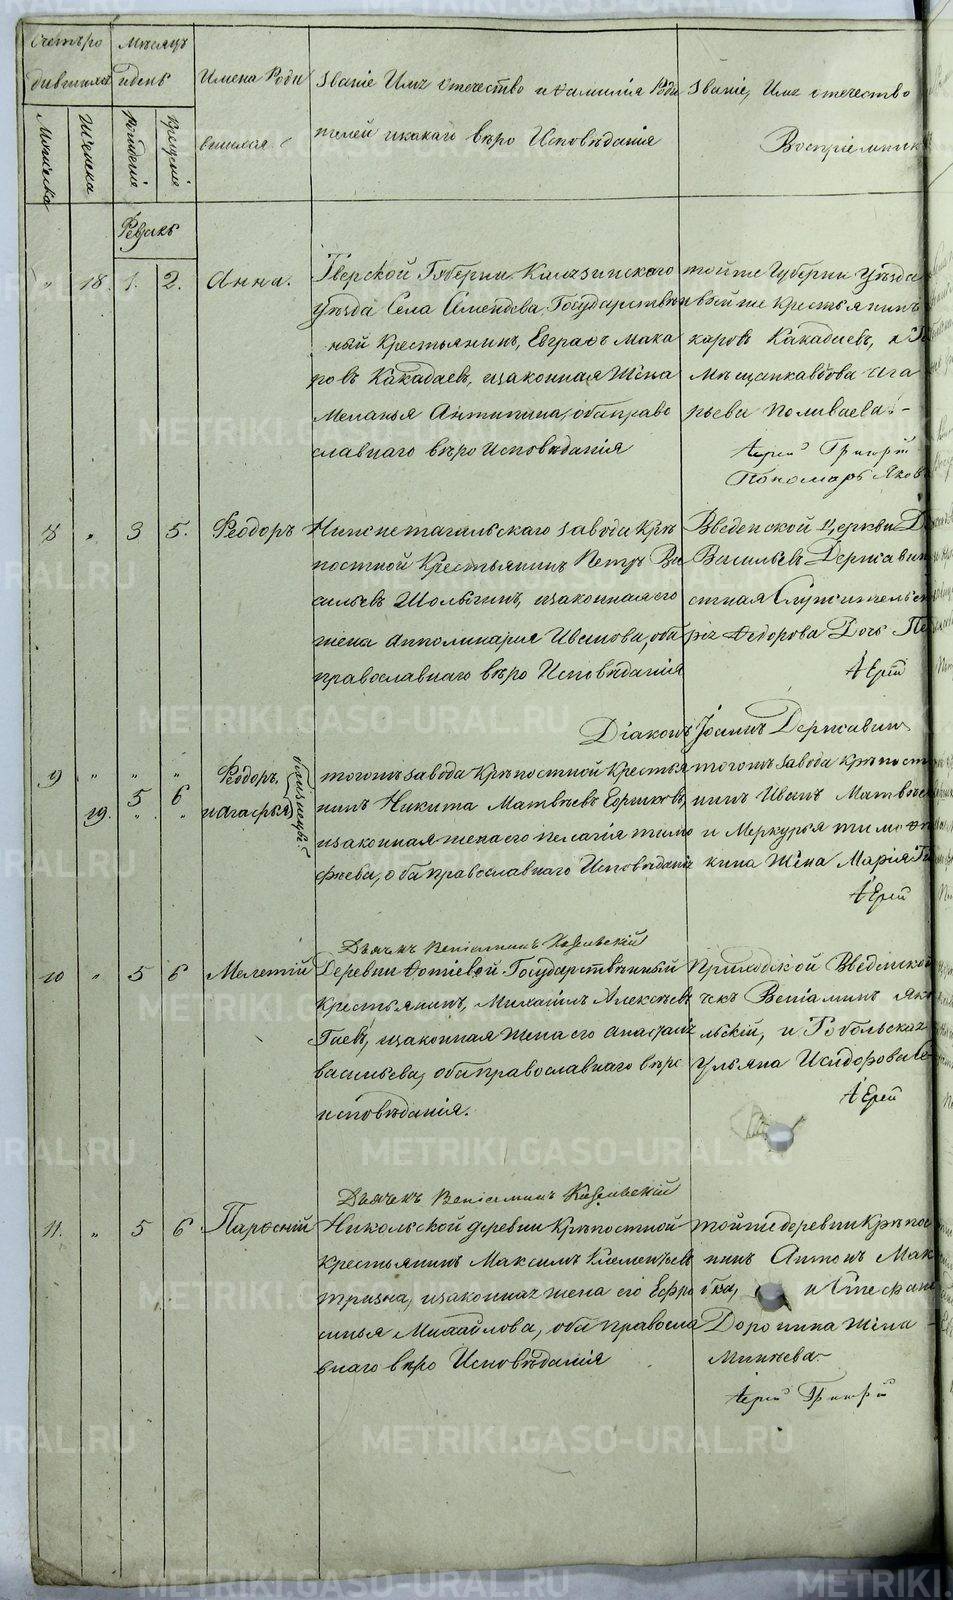 Счетъ ро
дившихся
Мѣсяцъ
и день
Имена Роди
вшихся
Званіе Имя отечество и фамилія Роди
телей и какаго вѣро Исповѣданія
Званіе, Имя отечество
Воспріемник
Мужеска
Женска
Рожденіе
Крещеніе
Февраль
" 18. 1. 2. Анна.
Тверской Губерніи Калязинскаго
уѣзда Села Государствен
ный Крестьянинъ, Евграфъ Мака
ровъ Какадаевъ, изаконная Жена
Меланья Антипина, оба право
славнаго вѣро Исповѣданія
тойже Губерніи Уѣзда
Крестьянинъ
каровъ Какадаевъ, и
Мѣщанка вдова Ага
рьева Поливаева.-
Іерей Григорій
Пономарь Яков
8 " 3 5. Феодоръ
Нижнетагильскаго завода Крѣ
постной Крестьянинъ Петръ Ва
сильевъ Шолыгинъ, изаконная его
жена Апполинарія Иванова, оба
православнаго вѣро Исповѣданія
Введенской Церкви Д
Васильевъ Державин
стная Служительск
рія Федорова Дочь Пе
Іерей
Діаконъ Іоаннъ Державинъ
9 " " "
19. 5 6
Феодоръ,
и Агафья
близнецы
тогожъ завода Крѣпостной Крестья
нинъ Никита Матвѣевъ Ершковъ,
изаконная жена его Пелагія Тимо
феева, оба православнаго Исповѣданія
тогожъ завода Крѣпост
нинъ Иванъ Матвѣев
и Меркурья Тимо
кина Жена Марія
Іерей
Дьячекъ Веніаминъ
10 " 5 6 Мелетій
Деревни Фотіевой Государственный
Крестьянинъ, Михаилъ Алексѣевъ
Гаевъ, изаконная жена его Анастасія
Васильева, оба православнаго вѣро
исповѣданія.
Приходской Введенской
чекъ Веніаминъ Як
льскій, и Тобольская
Ульяна Исидорова
Іерей
Дьячекъ Веніаминъ
11. " 5 6 Парфеній
Никольской деревни Крѣпостной
Крестьянинъ Максимъ Клементьевъ
изаконная жена его Ефро
синья Михайлова, оба правосла
внаго вѣро Исповѣданія
тойже деревни Крѣпос
нинъ Антонъ Мак
и Стефани
Доронина Жена
Минѣева-
Іерей Григорій
METRIKI.GASO-URAL.RU